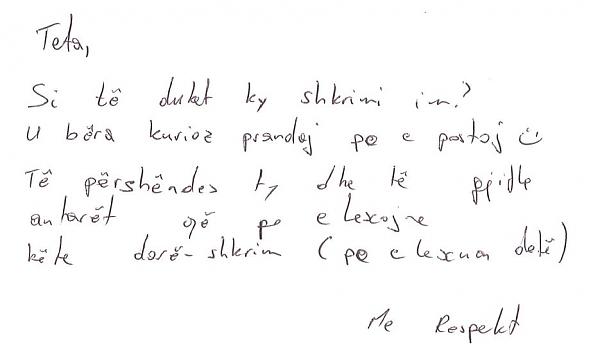 Teta,
Si të duket ky shkrimi im?
U bëra kurioz prandaj po e postoj ☺
Të përshëndes ty dhe të gjidhe
antarët që po e lexojne
këte dorë-shkrim (po e lexuan dotë)
Me Respekt